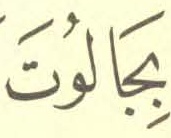 بِجَالُوْتَ